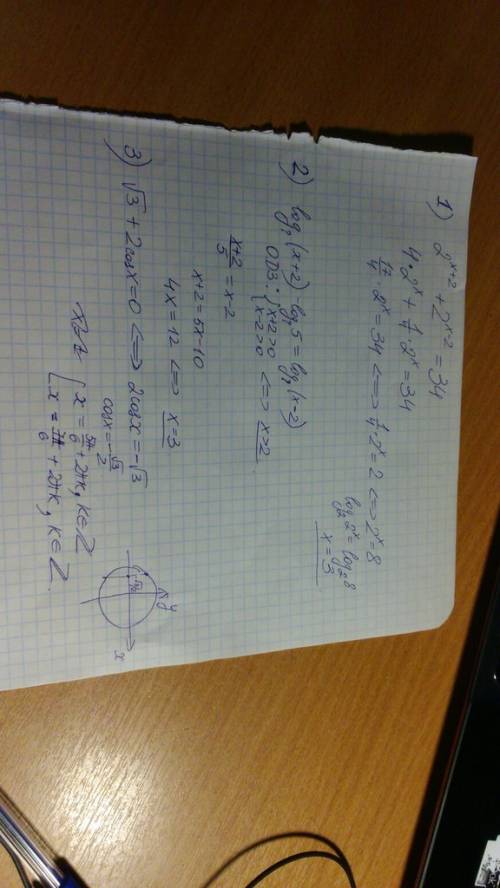 1) 2^{x+2} + 2^{x-2} = 34
4·2^x + 1/4·2^x = 34
17/4·2^x = 34 <=> 1/4·2^x = 2 <=> 2^x = 8
log₂2^x = log₂8
x = 3
2) log₇(x+2) - log₇5 = log₇(x-2)
ОДЗ: { x+2>0
x-2>0 <=> x>2
(x+2)/5 = x-2
x+2 = 5x-10
4x = 12 <=> x=3
3) √3 + 2cosx = 0 <=> 2cosx = -√3
cosx = -√3/2
[ x = 5π/6 + 2πk, k∈Z
x = 7π/6 + 2πk, k∈Z.
y
x